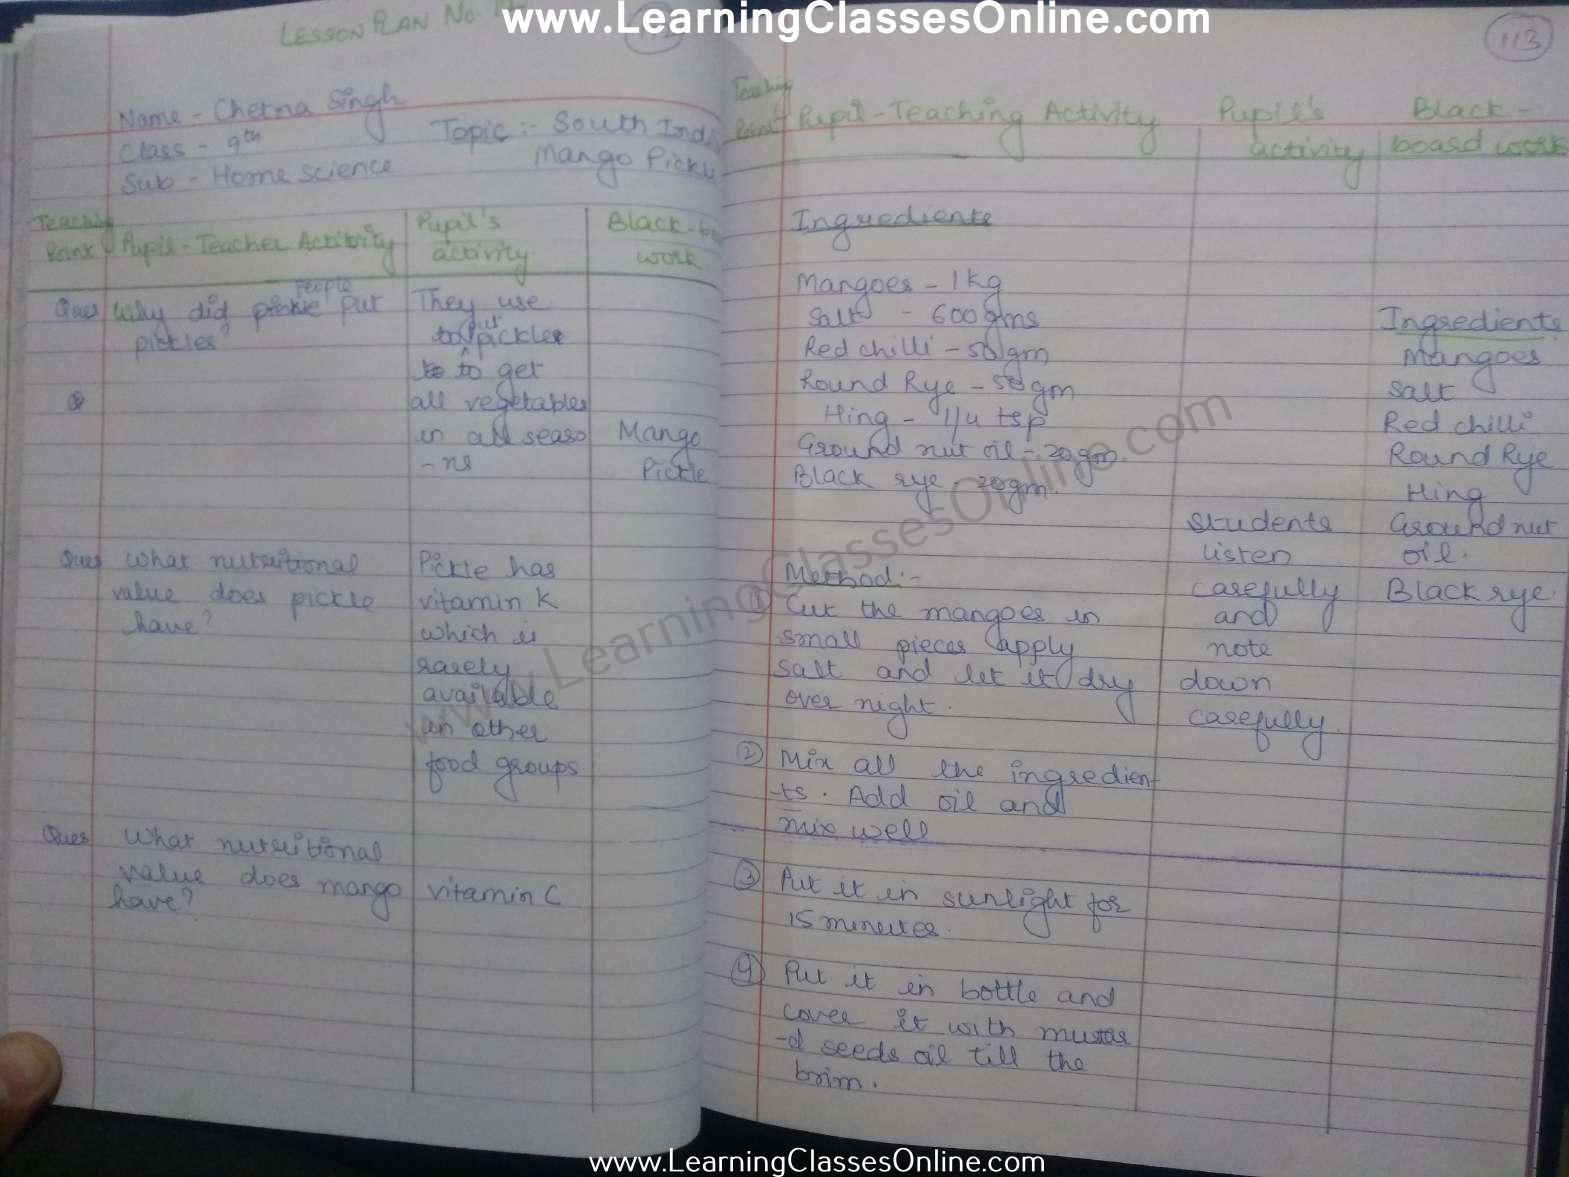 www.LearningClassesOnline.com
LESSON PLAN No.
Name - Chetna Singh
Class - 9th
Sub - Home science
Topic :- South Ind
Mango Pickl
Teaching Point
Pupil-Teacher Actitity
Pupil's activity
Black-bo
work
Ques
Why did people put
pickles?
They use
to put pickles
to get
all vegetables
in all seaso
-ns
Mango
Pickle
Ques
What nutritional
value does pickle
have?
Pickle has
vitamin K
which is
rarely
available
in other
food groups
Ques
What nutritional
value does mango
have?
vitamin C
113
Teaching
Point
Pupil-Teaching Activity
Pupil's
activity
Black-
board work
Ingredients
Mangoes - 1kg
Salt - 600gms
Red chilli - 50gm
Round Rye - 50gm
Hing - 1/4 tsp
Ground nut oil - 20gm
Black rye - 20gm.
Method:-
① Cut the mangoes in
small pieces apply
salt and let it dry
over night.
② Mix all the ingredien
ts. Add oil and
mix well
③ Put it in sunlight for
15 minutes.
④ Put it in bottle and
cover it with mustar
-d seeds oil till the
brim.
Students
listen
carefully
and
note
down
carefully.
Ingredients
Mangoes
Salt
Red chilli
Round Rye
Hing
Ground nut
oil.
Black rye.
www.LearningClassesOnline.com
www.LearningClassesOnline.com